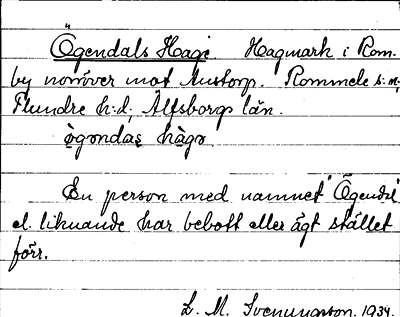 Ögendals Hage. Hagmark i Rom-
by norröver mot Austorp. Rommele s:n,
Flundre h:d, Älfsborgs län.
ögøndas hàgø
En person med namnet "Ögendal"
el. liknande har bebott eller ägt stället
förr.
L. M. Svenungsson. 1934.